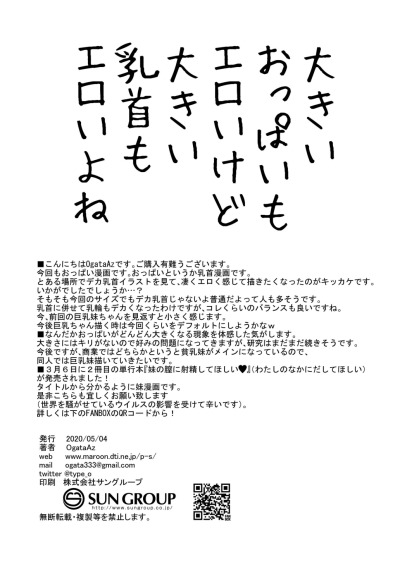 大きい
おっぱいも
エロいけど
大きい
乳首も
エロいよね
■こんにちはOgataAzです。ご購入有難うございます。
今回もおっぱい漫画です。おっぱいというか乳首漫画です。
とある場所でデカ乳首イラストを見て、凄くエロく感じて描きたくなったのがキッカケです。
いかがでしたでしょうか…？
そもそも今回のサイズでもデカ乳首じゃないよ普通だよって人も多そうです。
乳首に併せて乳輪もデカくなったわけですが、コレくらいのバランスも良いですね。
今、前回の巨乳妹ちゃんを見返すと小さく感じます。
今後巨乳ちゃん描く時は今回くらいをデフォルトにしようかなｗ
■なんだかおっぱいがどんどん大きくなる現象を体感した気がします。
大きさにはキリがないので好みの問題になってきますが、研究はまだまだ続きそうです。
今後ですが、商業ではどちらかというと貧乳妹がメインになっているので、
同人では巨乳妹描いていきたいです。
■３月６日に２冊目の単行本『妹の膣に射精してほしい♥』(わたしのなかにだしてほしい)
が発売されました！
タイトルから分かるように妹漫画です。
是非こちらも宜しくお願い致します
(世界を騒がせているウイルスの影響を受けて辛いです)。
詳しくは下のFANBOXのQRコードから！
発行　2020/05/04
著者　OgataAz
web　www.maroon.dti.ne.jp/p-s/
mail　ogata333@gmail.com
twitter @type_o
印刷　株式会社サングループ
SUN GROUP
http://www.sungroup.co.jp/
無断転載・複製等を禁止します。